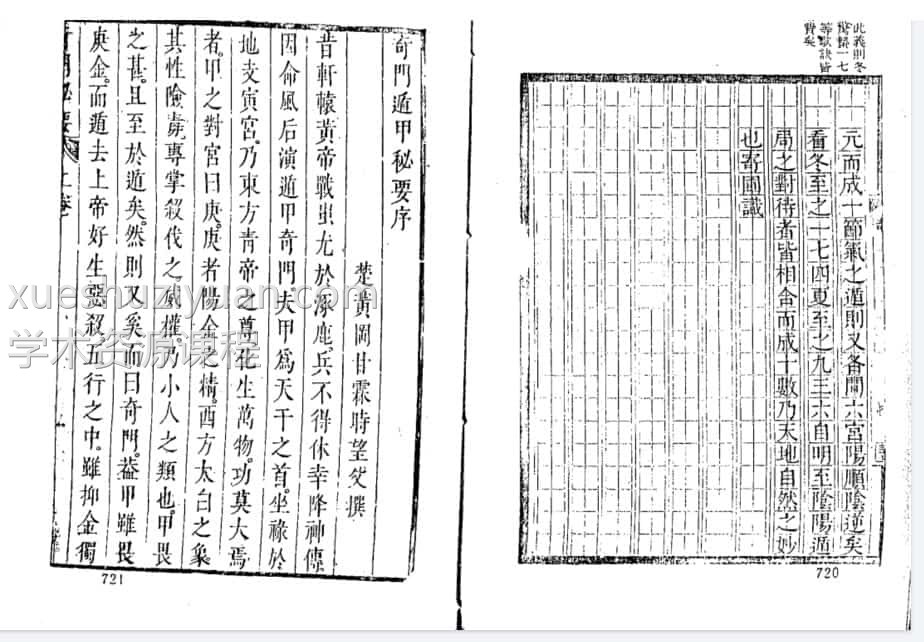 此義則冬
一七
等歌訣皆
贅矣
元而成十節氣之遁則又各閏六宮陽順陰逆矣
看冬至之一七四夏至之九三六自明至陰陽遁
局之對待者皆相合而成十數乃天地自然之妙
也寄圖識
720
奇門遁甲秘要序
楚黃岡甘霖時望父撰
昔軒轅黃帝戰蚩尤於涿鹿兵不得休幸降神傳
因命風后演遁甲奇門夫甲為天干之首坐祿於
地支寅宮乃東方青帝之尊化生萬物功莫大焉
者甲之對宮曰庚庚者陽金之精西方太白之象
其性險毒專掌殺伐之威權乃小人之類也甲畏
之甚且至於遁矣然則又奚而曰奇門葢甲雖畏
庚金而遁去上帝好生惡殺五行之中雖抑金獨
奇門秘要 上卷
721
xueshuziyuan.com
学术资源课程